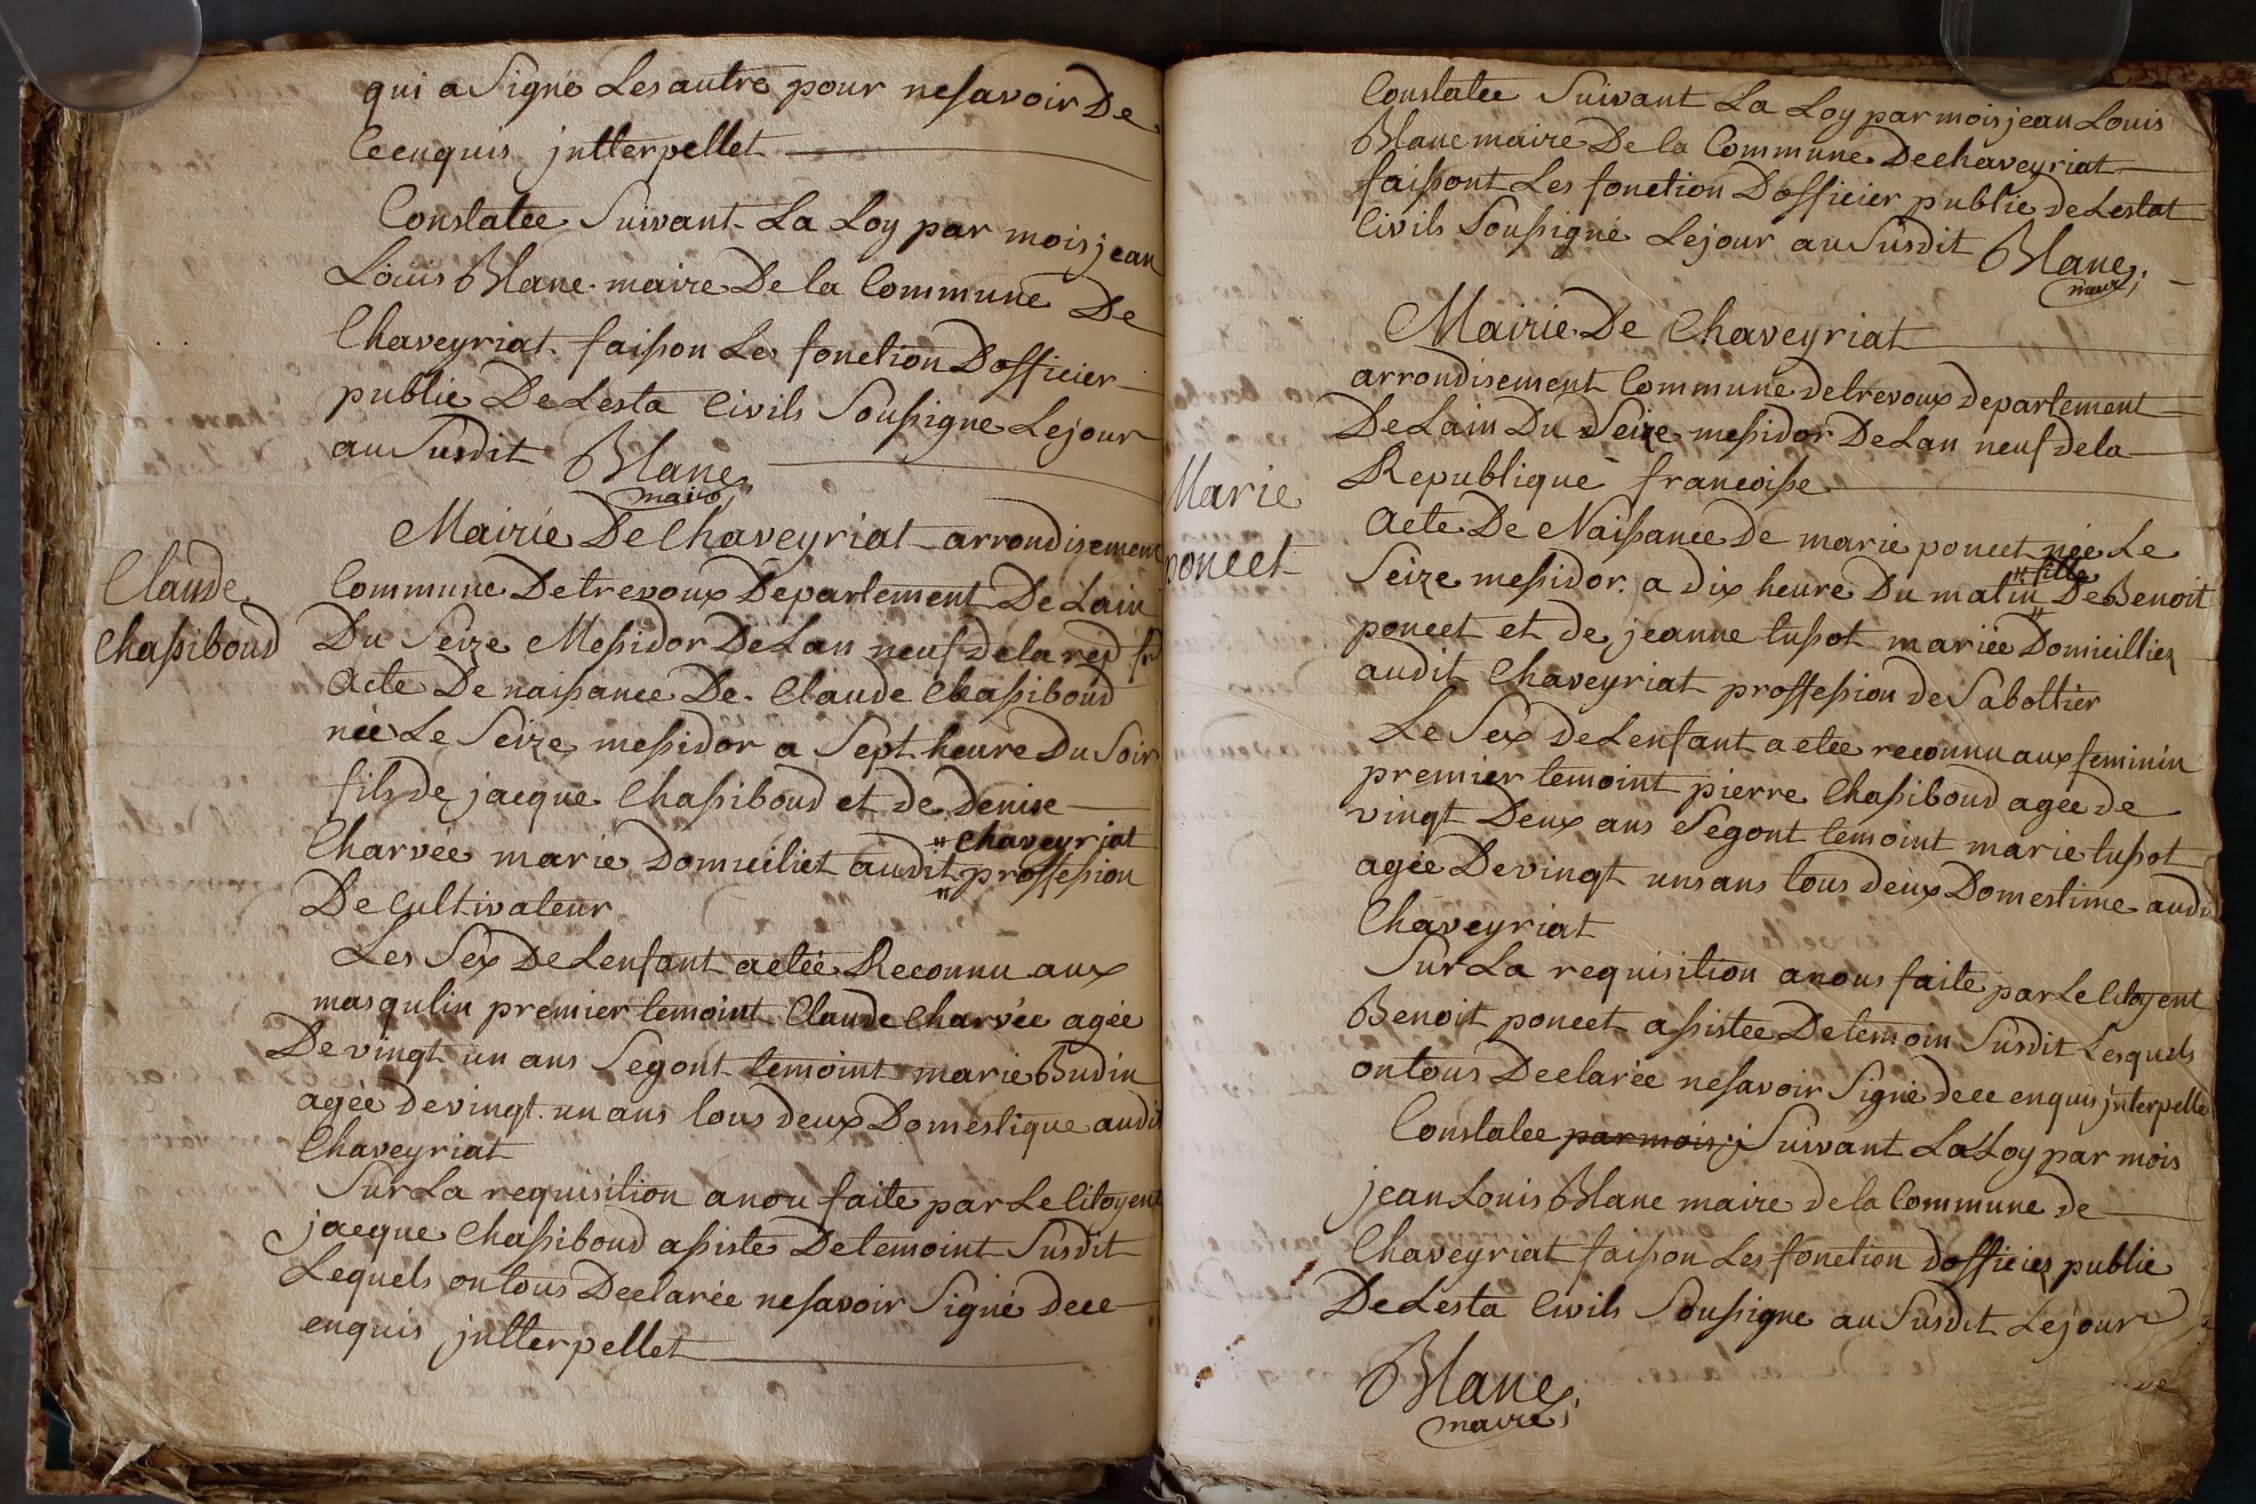 qui a Signé Les autre pour ne savoir De
Ce enquis jntterpellet
Constatée Suivant La Loy par mois jean
Louis Blanc maire De la Commune De
Chaveyriat faisson Les fonction Dofficier
public De Lesta Civils Soussigne Le jour
au Susdit Blanc
maire
Mairie De Chaveyriat arrondisement
Claude
Chassiboud
Commune De trevoux Departement De Lain
Du Seize Messidor De Lan neuf de la rep fr
Acte De naissance De Claude Chassiboud
née Le Seize messidor a Sept heure Du Soir
fils de jacque Chassiboud et de Denise
" Chaveyriat
Charvée marie Domiciliet audit " proffession
De Cultivateur
Les Sex De Lenfant a etée Reconnu aux
masqulin premier temoint Claude Charvée agée
De vingt un ans Segont temoint marie Budin
agée de vingt un ans tous deux Domestique audit
Chaveyriat
Sur La requisition a nou faite par Le Citoyent
jacque Chassiboud assiste De temoint Susdit
Lequels on tous Declarée ne savoir Signé de ce
enquis jntterpellet
Constatée Suivant La Loy par mois jean Louis
Blanc maire De la Commune De Chaveyriat
faissont Les fonction Dofficier public de Lestat
Civils Soussigné Le jour au Susdit Blanc
maire
Mairie De Chaveyriat
arrondisement Commune de trevoux departement
De Lain Du Seize messidor De Lan neuf de la
Republique francoisse
Marie
poncet
Acte De Naissance De marie poncet née Le
" fille
Seize messidor a dix heure Du matin " De Benoit
poncet et de jeanne tussot mariée Domicilliez
audit Chaveyriat proffession de Sabottier
Le Sex De Lenfant a etee reconnu aux feminin
premier temoint pierre Chassiboud agee de
vingt Deux ans Segont temoint marie tussot
agée De vingt uns ans tous deux Domestime audit
Chaveyriat
Sur La requisition a nous faite par Le Citoyent
Benoit poncet assistee De temoin Susdit Lesquels
on tous Declarée ne savoir Signé de ce enquis jnterpelle
Constatee par mois j Suivant La Loy par mois
jean Louis Blanc maire de la Commune de
Chaveyriat faisson Les fonction dofficier public
De Lesta Civils Soussigne au Susdit Le jour
Blanc
maire